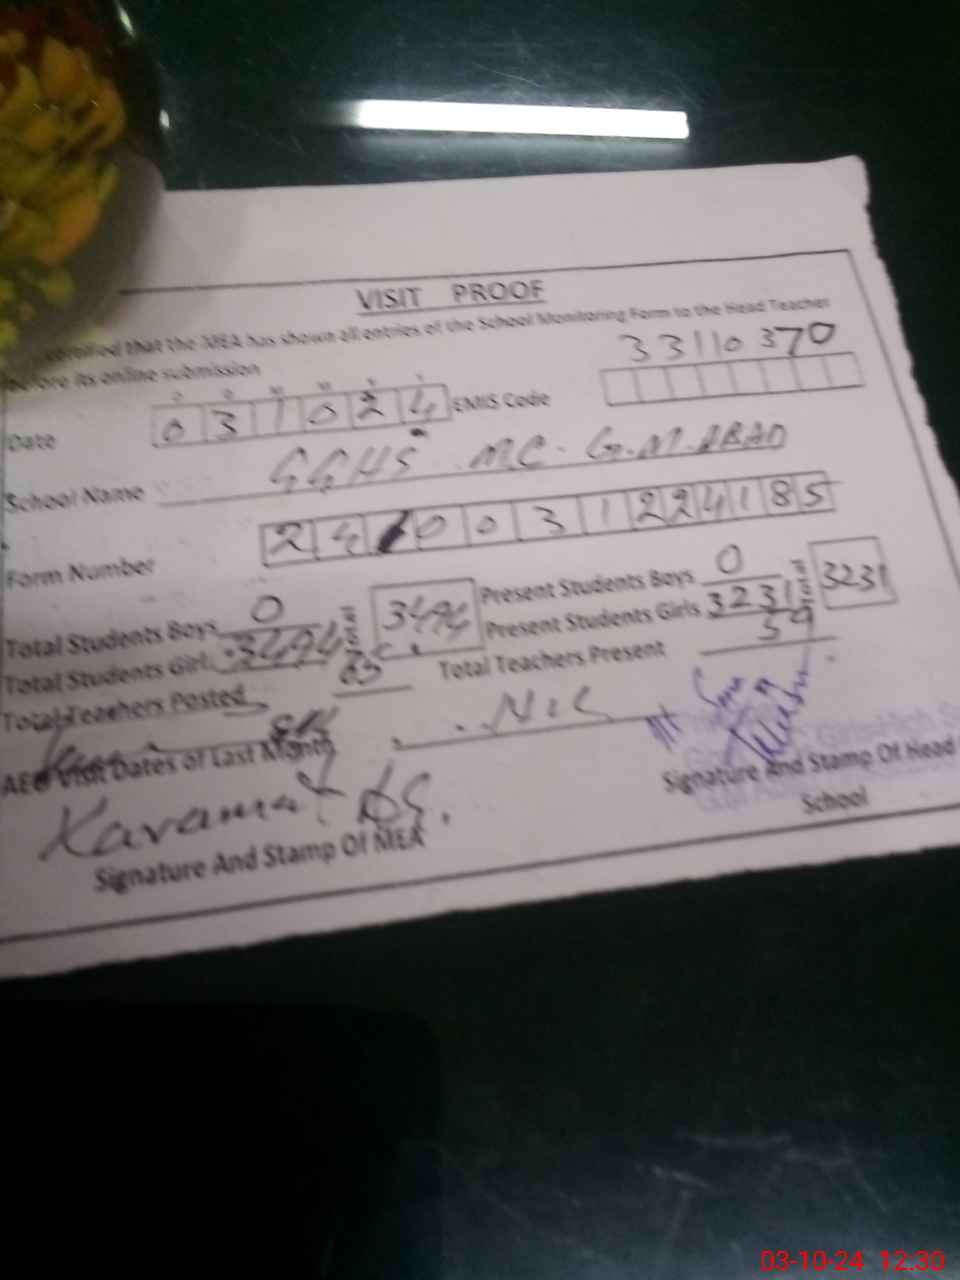 VISIT PROOF
that the MEA has shown all entries of the School Monitoring Form to the Head Teacher
before its online submission
Date 0 3 1 0 2 4 EMIS Code 33110370
School Name GGHS MC. G.M.ABAD
Form Number 2 4 0 0 3 1 2 2 4 1 8 5
Total Students Boys 0 3494 Present Students Boys 0 3231
Total Students Girls 3494 Present Students Girls 3231
Total Teachers Posted 63 Total Teachers Present 59
AEO Visit Dates of Last Month Nil
Karamat
Signature And Stamp Of MEA
Signature And Stamp Of Head
School
03-10-24 12:30